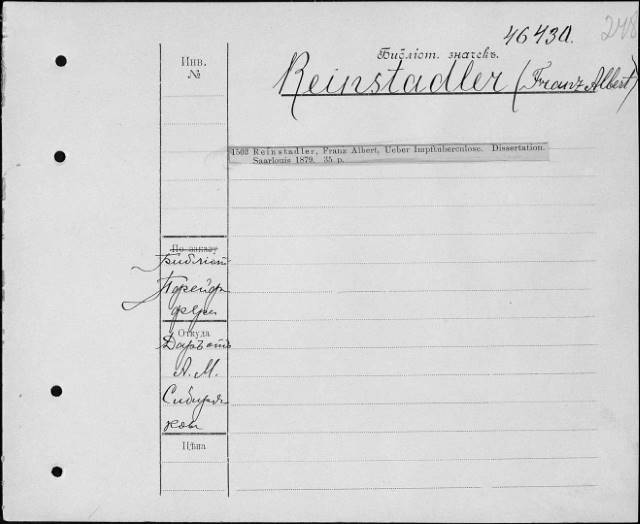 46430.
248
Библіот. значекъ.
Reinstadler (Franz Albert)
Инв.
№
1502 Reinstadler, Franz Albert, Ueber Impftuberculose. Dissertation.
Saarlouis 1879. 35 p.
По заказу
Библіот
Пфейф
фера
Откуда
Даръ отъ
А. М.
Сибиря
кова
Цѣна